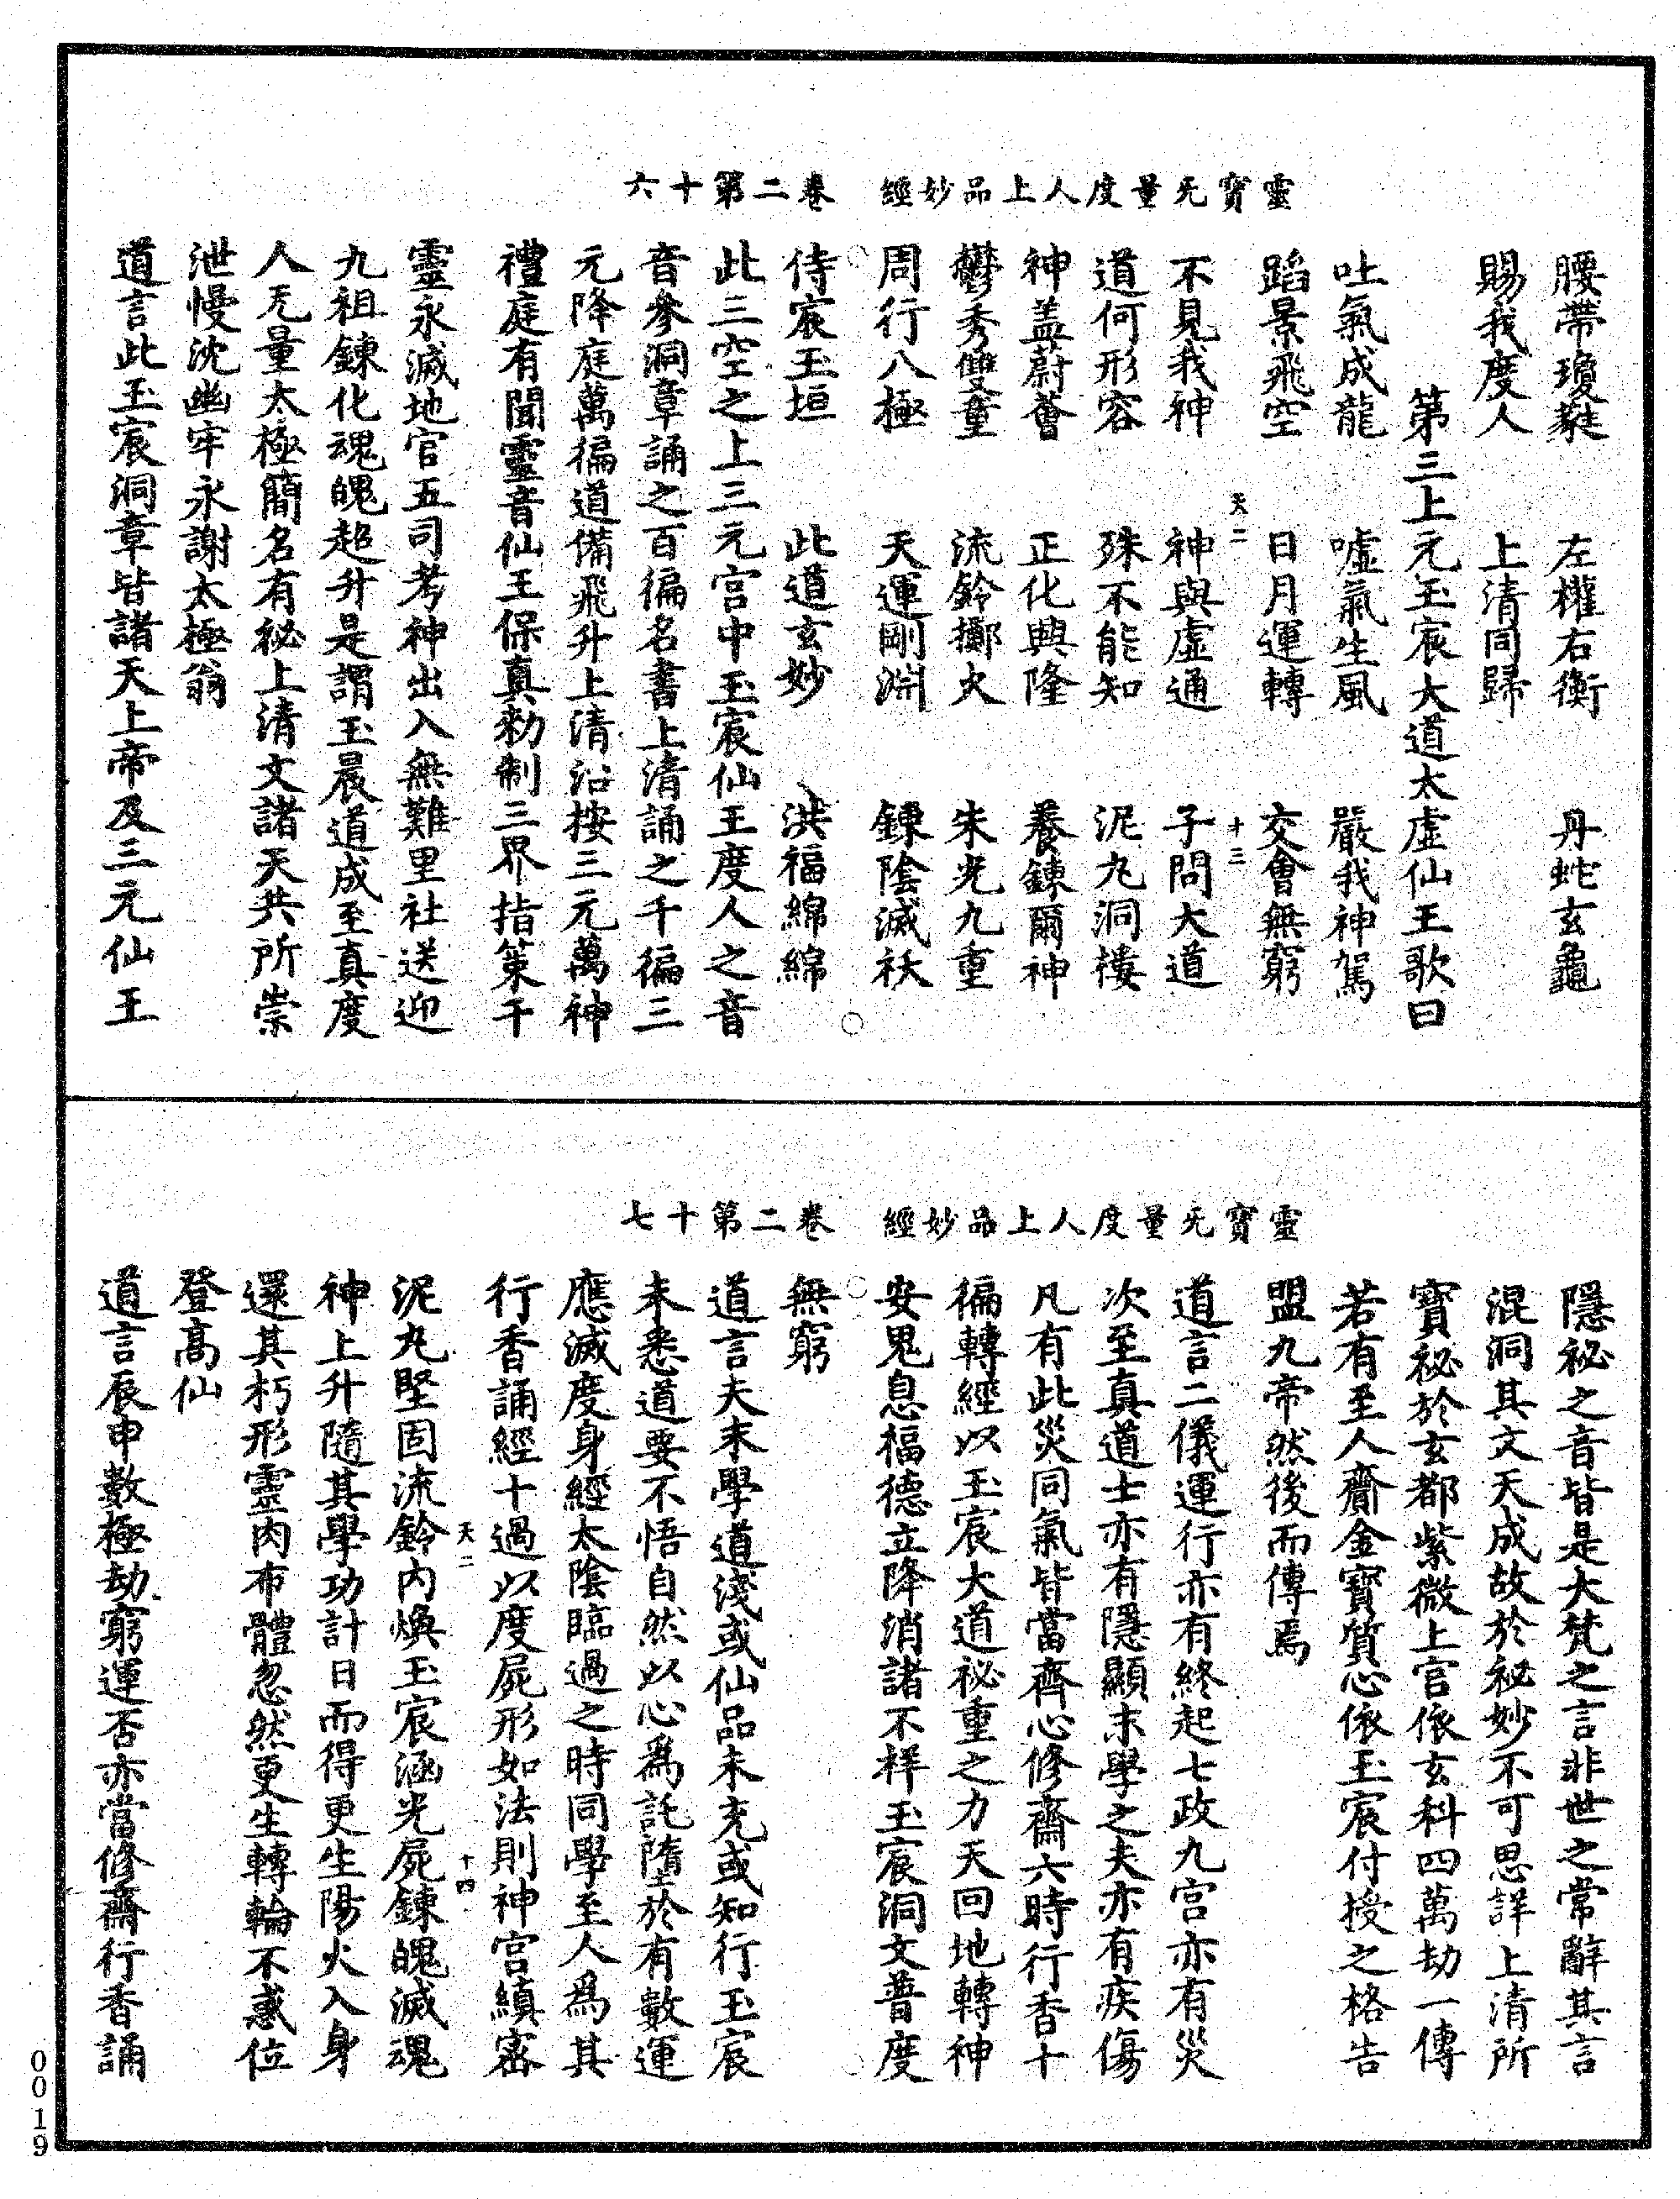 靈寶无量度人上品妙經　卷二第十六
腰帶瓊䩠　左權右衡　丹蛇玄龜
賜我度人　上清同歸
第三上元玉宸大道太虛仙王歌曰
吐氣成龍　噓氣生風　嚴我神駕
蹈景飛空　日月運轉　交會無窮
天二　十三
不見我神　神與虛通　子問大道
道何形容　殊不能知　泥丸洞樓
神蓋蔚薈　正化興隆　養鍊爾神
鬱秀雙童　流鈴擲火　朱光九重
周行八極　天運剛淵　鍊陰滅祅
侍宸玉垣　此道玄妙　洪福綿綿
此三空之上三元宮中玉宸仙王度人之音
音參洞章誦之百徧名書上清誦之千徧三
元降庭萬徧道備飛升上清沿按三元萬神
禮庭有聞靈音仙王保真勑制三界指策干
靈永滅地官五司考神出入無難里社送迎
九祖鍊化魂魄超升是謂玉晨道成至真度
人无量太極簡名有祕上清文諸天共所崇
泄慢沈幽牢永謝太極翁
道言此玉宸洞章皆諸天上帝及三元仙王
靈寶无量度人上品妙經　卷二第十七
隱祕之音皆是大梵之言非世之常辭其言
混洞其文天成故於祕妙不可思詳上清所
寶祕於玄都紫微上宮依玄科四萬劫一傳
若有至人齎金寶質心依玉宸付授之格告
盟九帝然後而傳焉
道言二儀運行亦有終起七政九宮亦有災
次至真道士亦有隱顯末學之夫亦有疾傷
凡有此災同氣皆當齊心修齋六時行香十
徧轉經以玉宸大道祕重之力天回地轉神
安鬼息福德立降消諸不祥玉宸洞文普度
無窮
道言夫末學道淺或仙品未充或知行玉宸
未悉道要不悟自然以心爲託墮於有數運
應滅度身經太陰臨過之時同學至人爲其
行香誦經十過以度屍形如法則神宮縝密
天二　十四
泥丸堅固流鈴內煥玉宸涵光屍鍊魄滅魂
神上升隨其學功計日而得更生陽火入身
還其朽形靈肉布體忽然更生轉輪不惑位
登高仙
道言辰申數極劫窮運否亦當修齋行香誦
0019